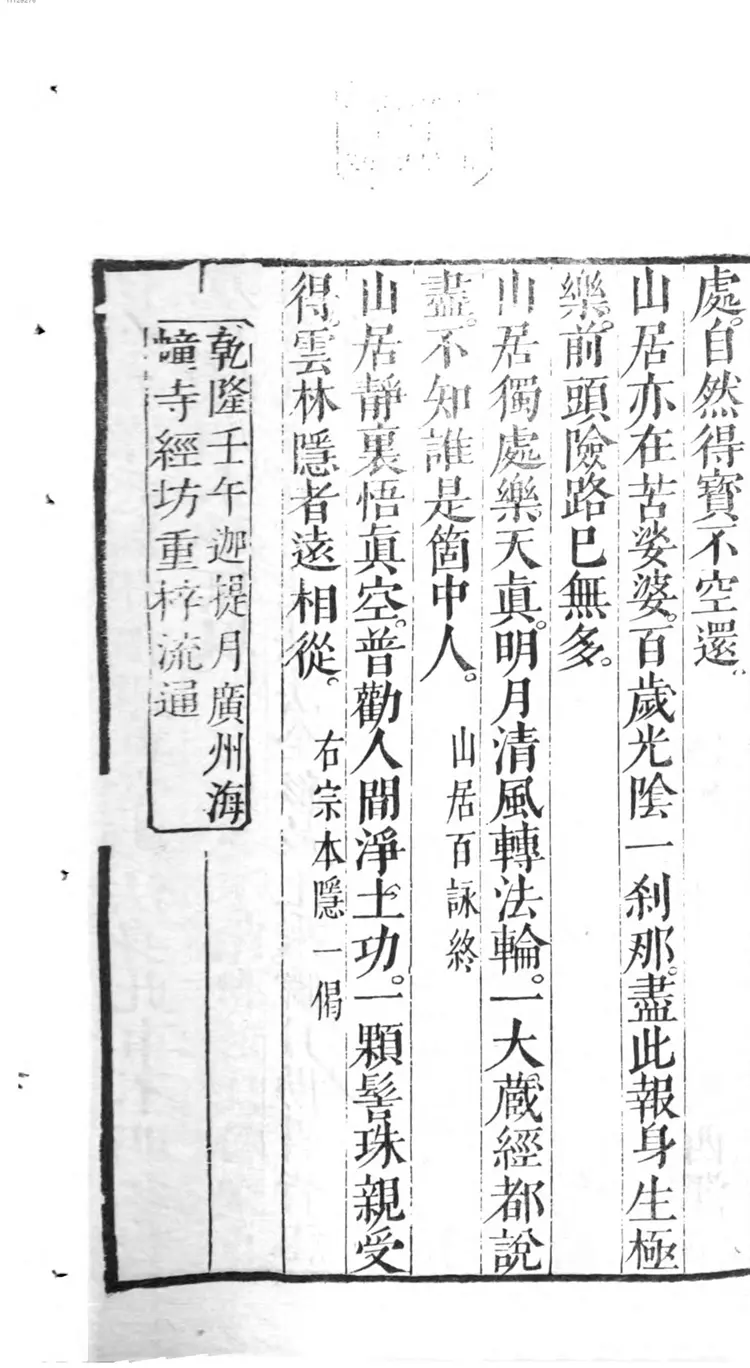 處。自然得寶不空還。
山居亦在苦娑婆。百歲光陰一剎那。盡此報身生極
樂。前頭險路已無多。
山居獨處樂天眞。明月清風轉法輪。一大蔵經都說
盡。不知誰是箇中人。
山居百詠終
山居靜裏悟眞空。普勸人間淨土功。一顆髻珠親受
得。雲林隱者遠相從。
右宗本隱一偈
乾隆壬午迦提月廣州海
幢寺經坊重梓流通